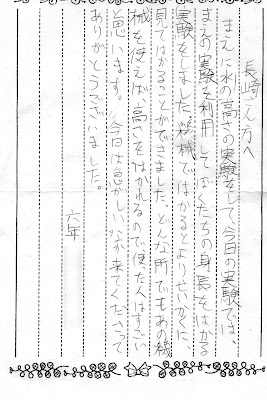 長崎さん方へ
まえに木の高さの実験をして、今日の実験では、
まえの実験を利用してぼくたちの身長をはかる
実験をしました。機械ではかるとよりせいかくに、
見てはかることができました。どんな所でもあの機
械を使えば、高さをはかれるので使った人はすごい
と思います。今日は急がしいなか来てくださって
ありがとうございました。
六年